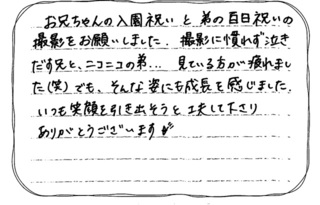 お兄ちゃんの入園祝いと弟の百日祝いの
撮影をお願いしました。撮影に慣れず泣き
だす兄と、ニコニコの弟… 見ている方が疲れまし
た(笑)でも、そんな姿にも成長を感じました。
いつも笑顔を引き出そうと工夫して下さり
ありがとうございます